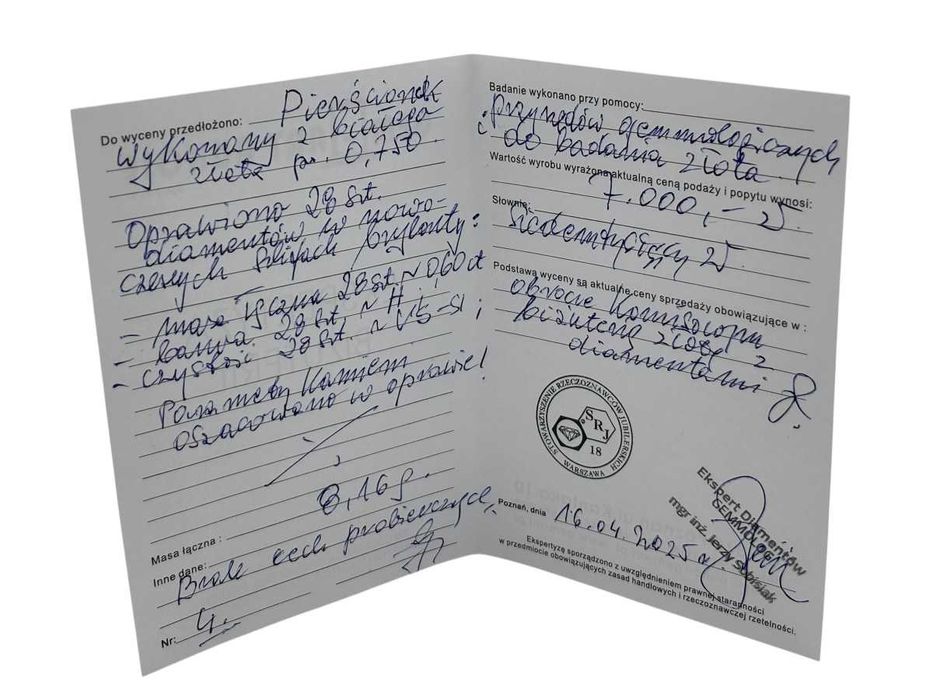 Do wyceny przedłożono: Pierścionek
wykonany z białego
złota pr. 0,750
Oprawiono 28 szt.
diamentów w nowo-
czesnych szlifach brylanty:
- masa łączna 28 szt. ~ 0,60 ct
- barwa 28 szt. ~ H ;
- czystość 28 szt. ~ VS-SI ;
Parametry kamieni
oszacowano w oprawie!
Masa łączna : 8,16 g.
Inne dane: Brak cech probierczych,
Nr: 4.
Badanie wykonano przy pomocy:
przyrządów gemmologicznych
i do badania złota
Wartość wyrobu wyrażona aktualną ceną podaży i popytu wynosi:
7.000,-
Słownie:
siedemtysięcy
Podstawą wyceny są aktualne ceny sprzedaży obowiązujące w :
obrocie komisowym
biżuterią złotą z
diamentami
STOWARZYSZENIE RZECZOZNAWCÓW JUBILERSKICH
SRJ
18
WARSZAWA
Poznań, dnia 16.04.2025 r.
Ekspert Diamentów
GEMMOLOG
mgr inż. Jerzy Sobisiak
Ekspertyzę sporządzono z uwzględnieniem prawnej staranności
w przedmiocie obowiązujących zasad handlowych i rzeczoznawczej rzetelności.